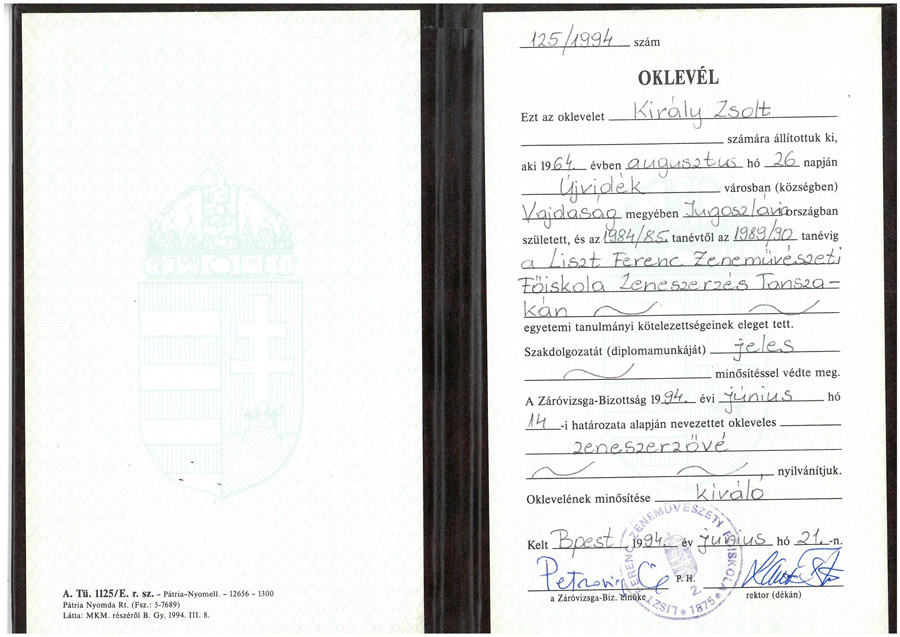 A. Tü. 1125/E. r. sz. – Pátria-Nyomell. – 12656 – 1300
Pátria Nyomda Rt. (Fsz.: 5-7689)
Látta: MKM. részéről B. Gy. 1994. III. 8.
125/1994 szám
OKLEVÉL
Ezt az oklevelet Király Zsolt
számára állítottuk ki,
aki 1964. évben augusztus hó 26 napján
Újvidék városban (községben)
Vajdaság megyében Jugoszláviaországban
született, és az 1984/85. tanévtől az 1989/90 tanévig
a Liszt Ferenc Zeneművészeti
Főiskola Zeneszerzés Tansza-
kán
egyetemi tanulmányi kötelezettségeinek eleget tett.
Szakdolgozatát (diplomamunkáját) jeles
minősítéssel védte meg.
A Záróvizsga-Bizottság 1994. évi június hó
14 -i határozata alapján nevezettet okleveles
zeneszerzővé
nyilvánítjuk.
Oklevelének minősítése kiváló
Kelt Bpest, 1994. év június hó 21.-n.
P. H.
a Záróvizsga-Biz. elnöke
rektor (dékán)
LISZT FERENC ZENEMŰVÉSZETI FŐISKOLA * 1875 *
2.